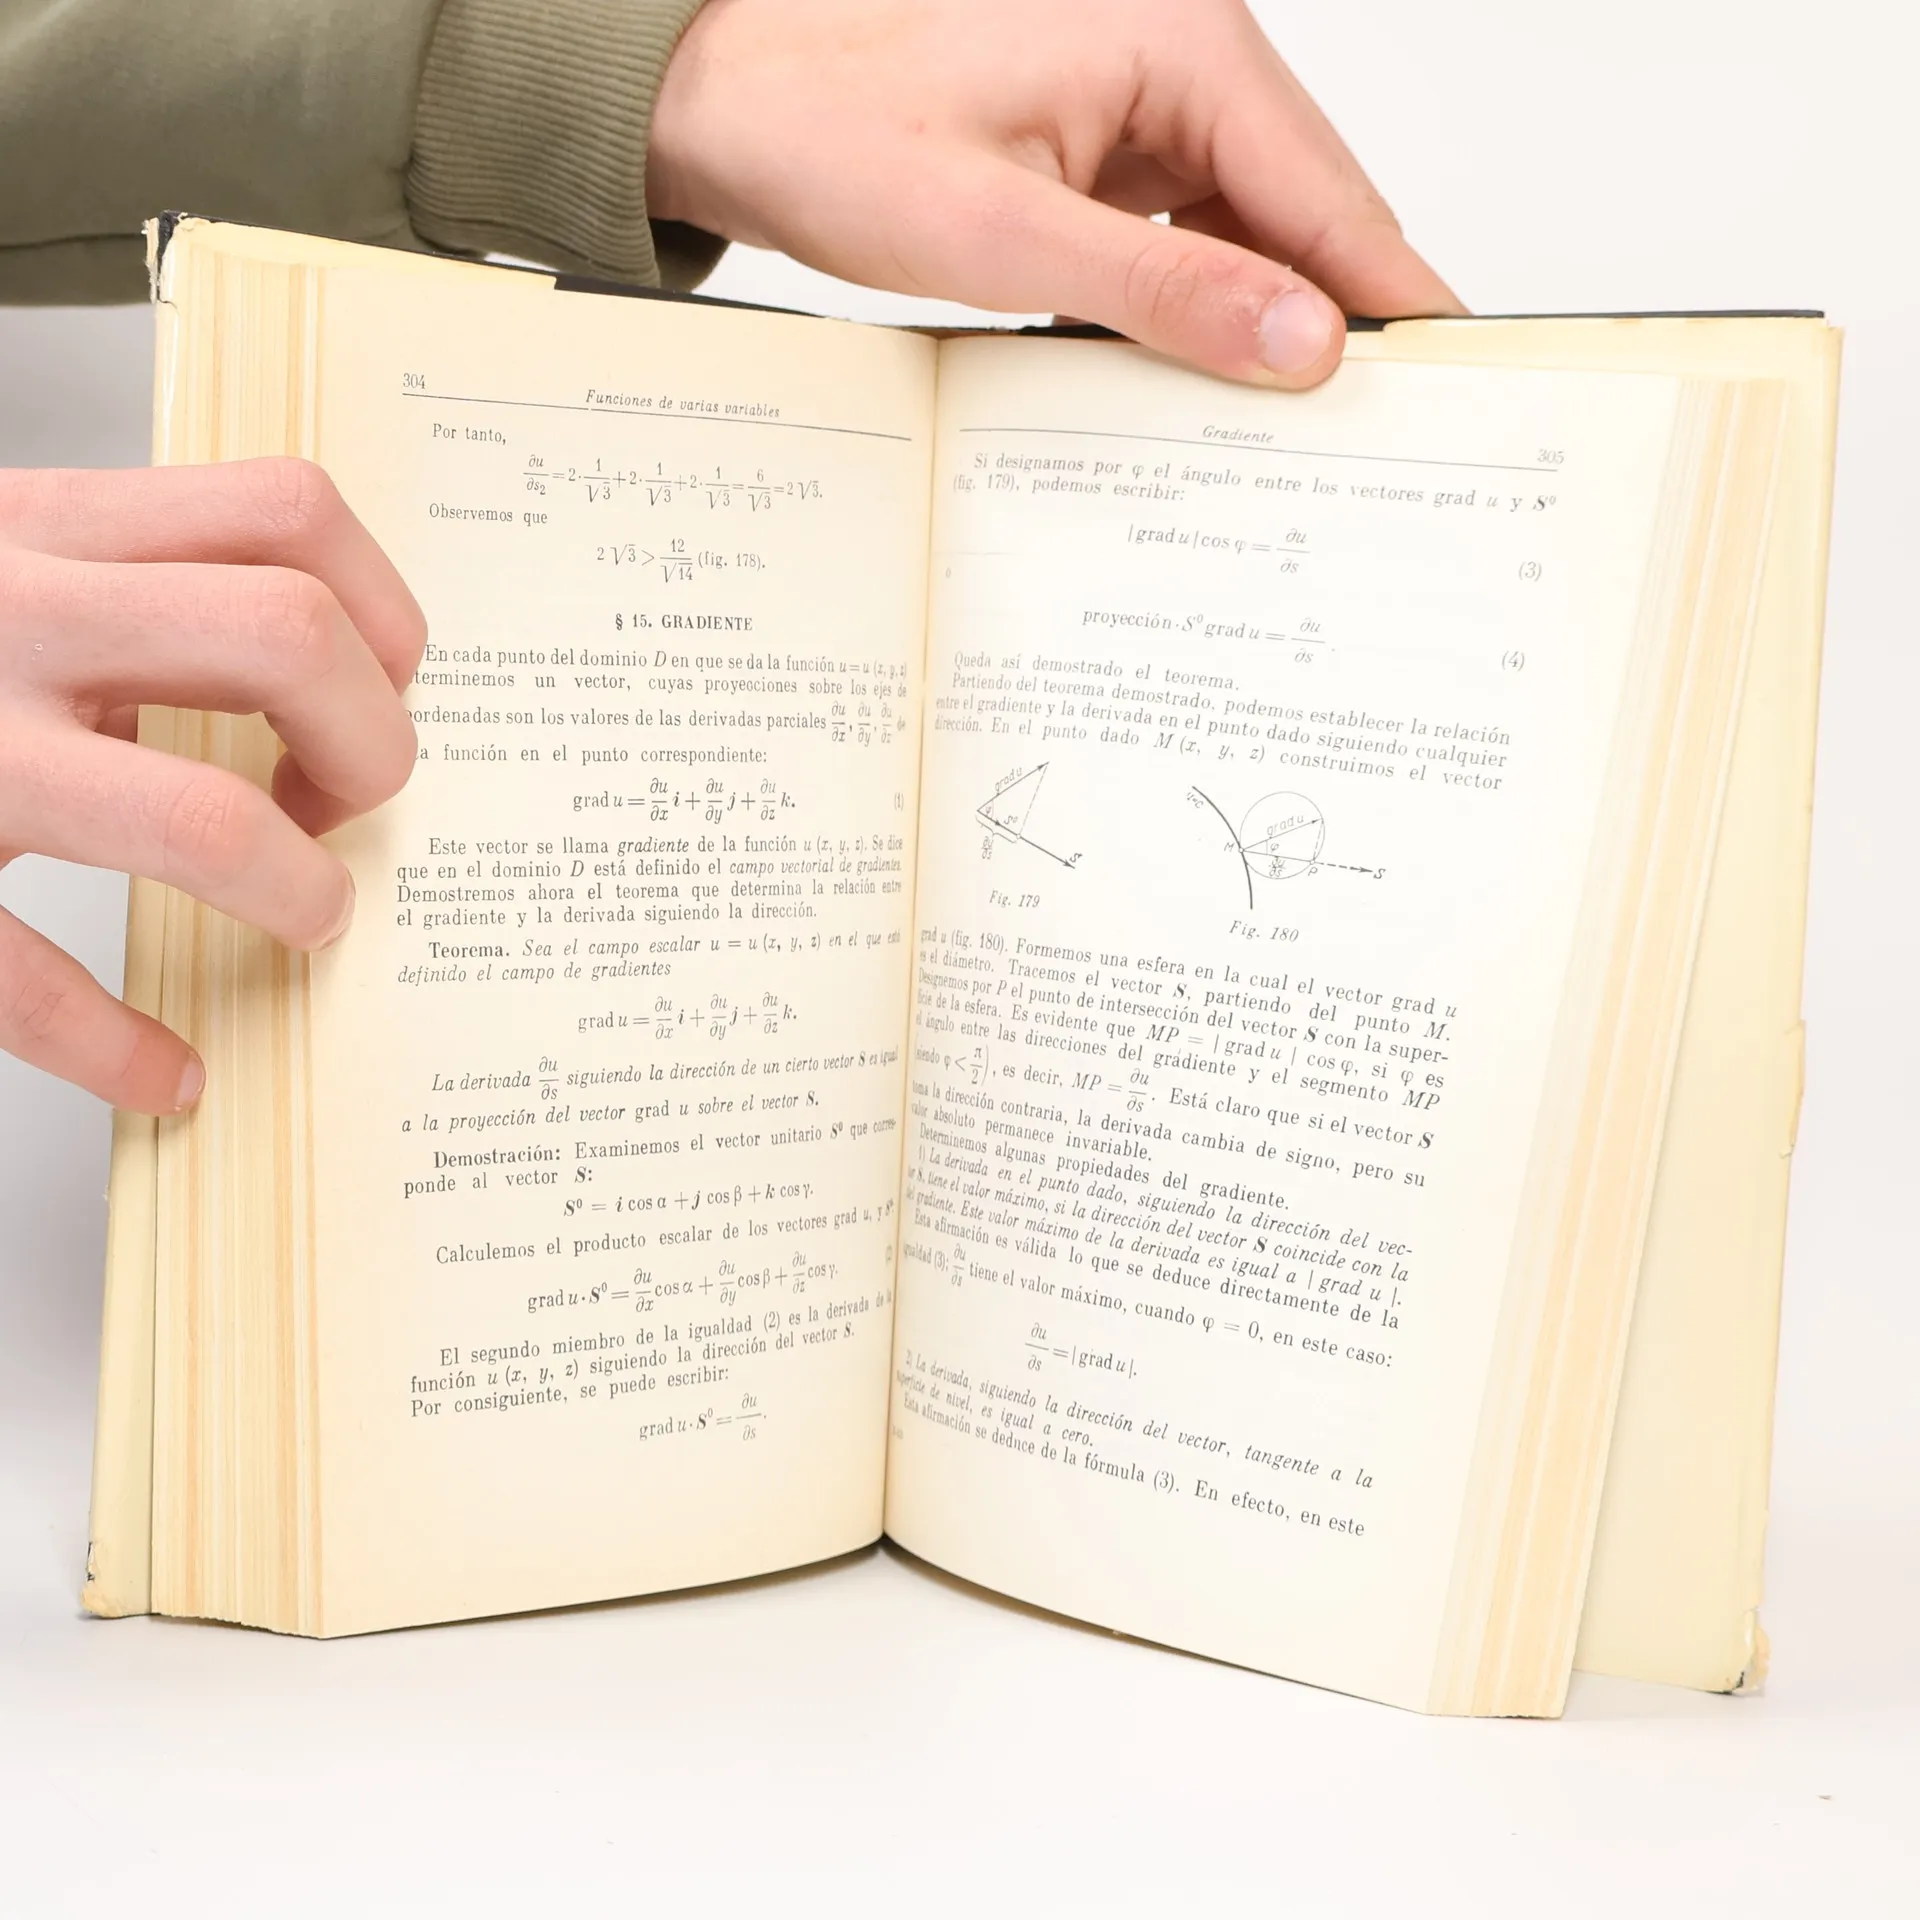 304
Funciones de varias variables
Por tanto,
∂u/∂s₂ = 2·1/√3 + 2·1/√3 + 2·1/√3 = 6/√3 = 2√3.
Observemos que
2√3 > 12/√14 (fig. 178).
§ 15. GRADIENTE
En cada punto del dominio D en que se da la función u = u (x, y, z)
terminemos un vector, cuyas proyecciones sobre los ejes de
ordenadas son los valores de las derivadas parciales ∂u/∂x, ∂u/∂y, ∂u/∂z de
a función en el punto correspondiente:
grad u = ∂u/∂x i + ∂u/∂y j + ∂u/∂z k. (1)
Este vector se llama gradiente de la función u (x, y, z). Se dice
que en el dominio D está definido el campo vectorial de gradientes.
Demostremos ahora el teorema que determina la relación entre
el gradiente y la derivada siguiendo la dirección.
Teorema. Sea el campo escalar u = u (x, y, z) en el que está
definido el campo de gradientes
grad u = ∂u/∂x i + ∂u/∂y j + ∂u/∂z k.
La derivada ∂u/∂s siguiendo la dirección de un cierto vector S es igual
a la proyección del vector grad u sobre el vector S.
Demostración: Examinemos el vector unitario S⁰ que corres-
ponde al vector S:
S⁰ = i cos α + j cos β + k cos γ.
Calculemos el producto escalar de los vectores grad u, y S⁰
grad u · S⁰ = ∂u/∂x cos α + ∂u/∂y cos β + ∂u/∂z cos γ. (2)
El segundo miembro de la igualdad (2) es la derivada de la
función u (x, y, z) siguiendo la dirección del vector S.
Por consiguiente, se puede escribir:
grad u · S⁰ = ∂u/∂s.
Gradiente
305
Si designamos por φ el ángulo entre los vectores grad u y S⁰
(fig. 179), podemos escribir:
| grad u | cos φ = ∂u/∂s (3)
o
proyección · S⁰ grad u = ∂u/∂s. (4)
Queda así demostrado el teorema.
Partiendo del teorema demostrado, podemos establecer la relación
entre el gradiente y la derivada en el punto dado siguiendo cualquier
dirección. En el punto dado M (x, y, z) construimos el vector
grad u
φ
S⁰
∂u/∂s
S
Fig. 179
u=c
M
grad u
φ
∂u/∂s
P
S
Fig. 180
grad u (fig. 180). Formemos una esfera en la cual el vector grad u
es el diámetro. Tracemos el vector S, partiendo del punto M.
Designemos por P el punto de intersección del vector S con la super-
ficie de la esfera. Es evidente que MP = | grad u | cos φ, si φ es
el ángulo entre las direcciones del gradiente y el segmento MP
(siendo φ < π/2), es decir, MP = ∂u/∂s. Está claro que si el vector S
toma la dirección contraria, la derivada cambia de signo, pero su
valor absoluto permanece invariable.
Determinemos algunas propiedades del gradiente.
1) La derivada en el punto dado, siguiendo la dirección del vec-
tor S, tiene el valor máximo, si la dirección del vector S coincide con la
del gradiente. Este valor máximo de la derivada es igual a | grad u |.
Esta afirmación es válida lo que se deduce directamente de la
igualdad (3): ∂u/∂s tiene el valor máximo, cuando φ = 0, en este caso:
∂u/∂s = | grad u |.
2) La derivada, siguiendo la dirección del vector, tangente a la
superficie de nivel, es igual a cero.
Esta afirmación se deduce de la fórmula (3). En efecto, en este